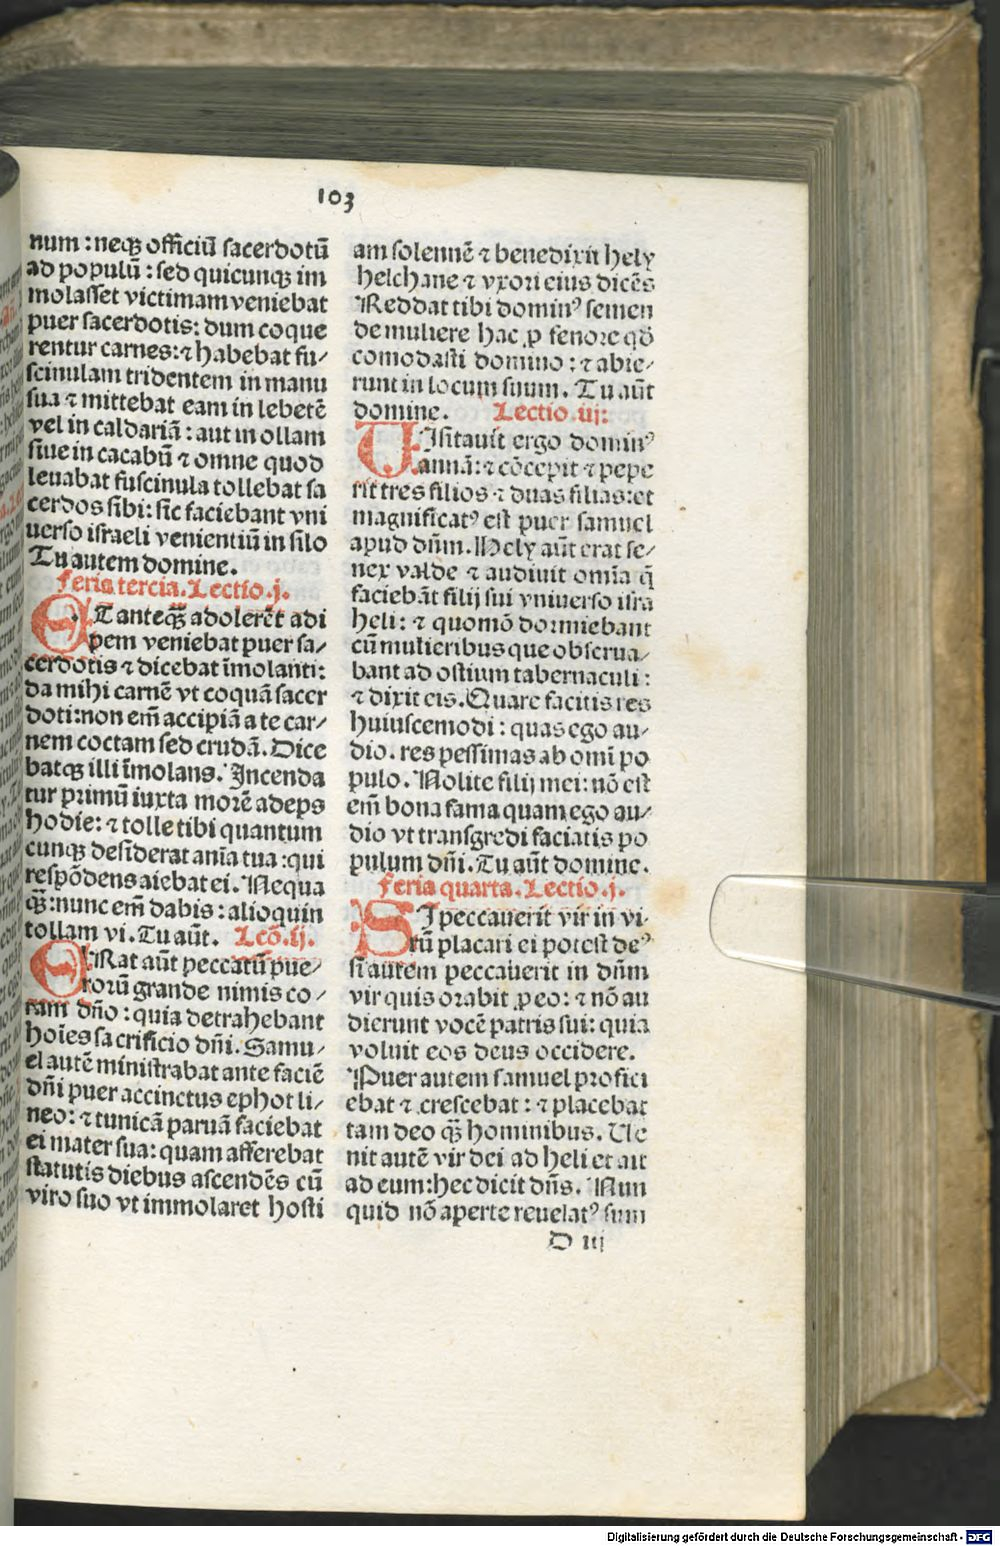 103
num : neqꝫ officiū sacerdotū
ad populū : sed quicunqꝫ im
molasset victimam veniebat
puer sacerdotis: dum coque
rentur carnes: ⁊ habebat fu⸗
scinulam tridentem in manu
sua ⁊ mittebat eam in lebetē
vel in caldariā : aut in ollam
siue in cacabū ⁊ omne quod
leuabat fuscinula tollebat sa
cerdos sibi: sic faciebant vni
uerso israeli venientiū in silo
Tu autem domine.
Feria tercia. Lectio .j.
ET anteqꝫ̄ adolerēt adi
pem veniebat puer sa⸗
cerdotis ⁊ dicebat īmolanti:
da mihi carnē vt coquā sacer
doti: non em̄ accipiā a te car⸗
nem coctam sed crudā. Dice
batqꝫ illi īmolans. Incenda
tur primū iuxta morē adeps
hodie: ⁊ tolle tibi quantum
cunqꝫ desiderat ania tua : qui
respōdens aiebat ei. Nequa
qꝫ̄: nunc em̄ dabis : alioquin
tollam vi. Tu aūt. Lcō. ij.
ERat aūt peccatū pue⸗
rorū grande nimis co⸗
ram dn̄o : quia detrahebant
hoīes sacrificio dn̄i. Samu⸗
el autē ministrabat ante faciē
dn̄i puer accinctus ephot li⸗
neo: ⁊ tunicā paruā faciebat
ei mater sua: quam afferebat
statutis diebus ascendēs cū
viro suo vt immolaret hosti
am solennē ⁊ benedixit hely
helchane ⁊ vxori eius dicēs
Reddat tibi dominꝰ semen
de muliere hac ꝓ fenore qđ
comodasti domino : ⁊ abie⸗
runt in locum suum. Tu aūt
domine. Lectio .iij:
VIsitauit ergo dominꝰ
annā: ⁊ cōcepit ⁊ pepe
rit tres filios ⁊ duas filias: et
magnificatꝰ est puer samuel
apud dn̄m. Hely aūt erat se⸗
nex valde ⁊ audiuit omīa q̄
faciebāt filij sui vniuerso isra
heli : ⁊ quomō dormiebant
cū mulieribus que obserua⸗
bant ad ostium tabernaculi :
⁊ dixit eis. Quare facitis res
huiuscemodi : quas ego au⸗
dio. res pessimas ab omī po
pulo. Nolite filij mei: nō est
em̄ bona fama quam ego au⸗
dio vt transgredi faciatis po
pulum dn̄i. Tu aūt domine.
Feria quarta. Lectio .j.
SI peccauerit vir in vi⸗
rū placari ei potest deꝰ
si autem peccauerit in dn̄m
vir quis orabit ꝓ eo: ⁊ nō au
dierunt vocē patris sui: quia
voluit eos deus occidere.
Puer autem samuel profici
ebat ⁊ crescebat : ⁊ placebat
tam deo qꝫ̄ hominibus. Ve
nit autē vir dei ad heli et ait
ad eum: hec dicit dn̄s. Nun
quid nō aperte reuelatꝰ sum
D iij
Digitalisierung gefördert durch die Deutsche Forschungsgemeinschaft - DFG